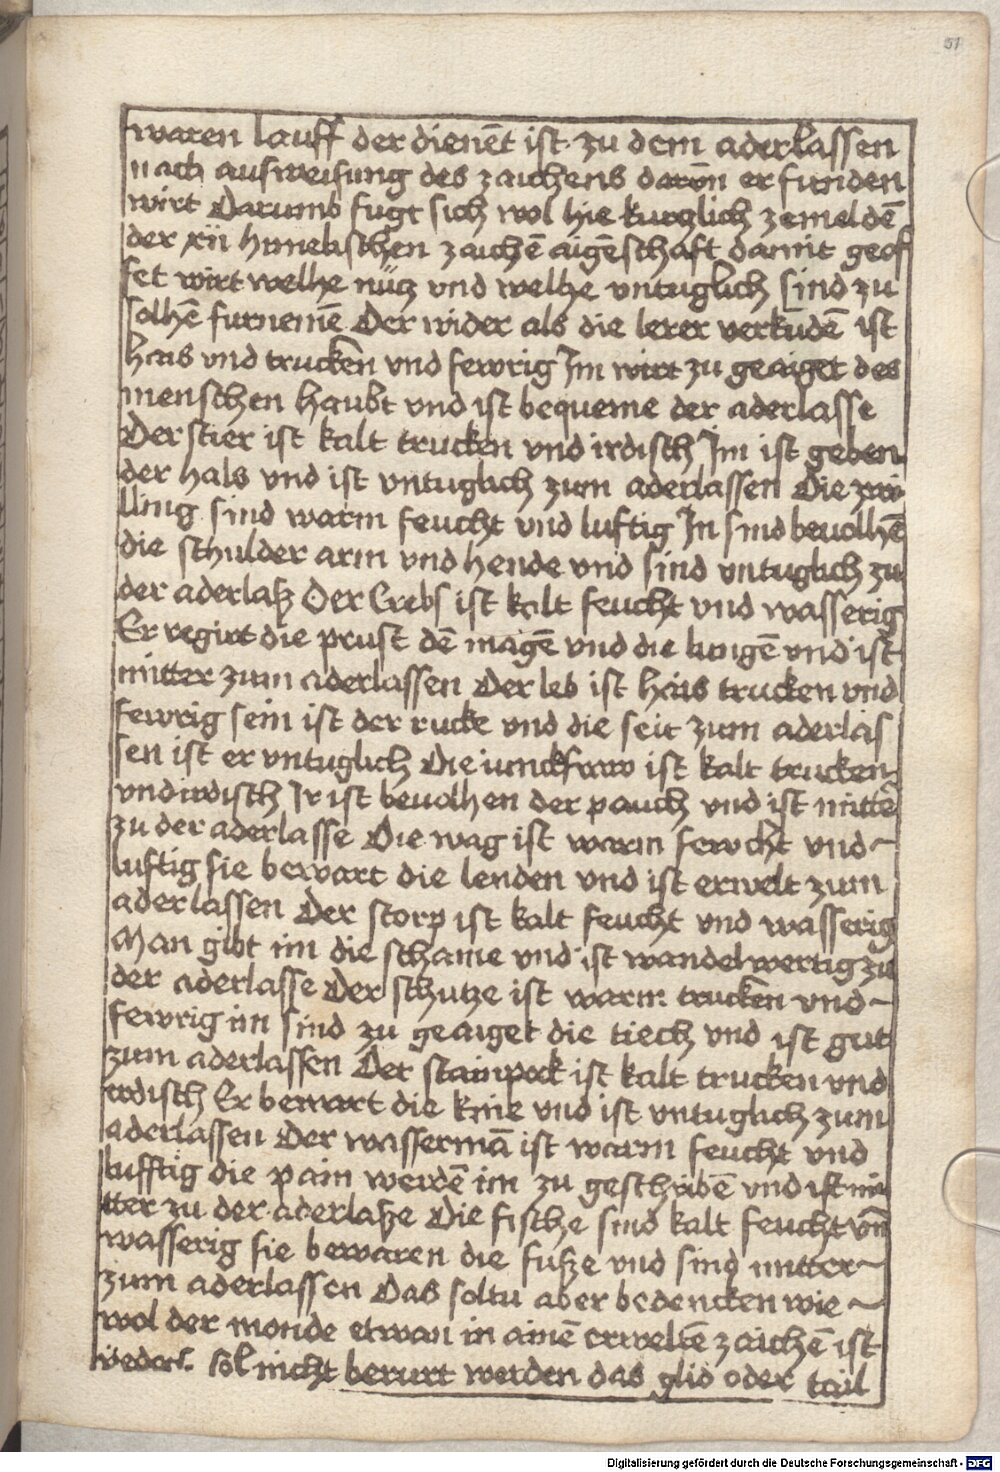 51
waren lauff der dienēt ist zu dem aderlassen
nach ausweisung des zaichens darōn erfunden
wirt Darumb fugt sich wol hie kurczlich zemeldē
der xii himelischen zaichē aigēschaft damit geof
fet wirt welhe nücz vnd welhe vntuglich sind zu
solhē furnemē Der wider als die lerer verkudē ist
hais vnd trucken vnd fewrig Im wirt zu geaiget des
menschen haubt vnd ist bequeme der aderlasse
Der stier ist kalt trucken vnd irdisch Im ist geben
der hals vnd ist vntuglich zum aderlassen Die zwi
lling sind warm feucht vnd luftig In sind beuolhē
die schulder arm vnd hende vnd sind vntuglich zu
der aderlaß Der Crebs ist kalt feucht vnd wasserig
Er regirt die prust dē magē vnd die lungē vnd ist
mitter zum aderlassen Der leb ist hais trucken vnd
fewrig sein ist der rucke vnd die seit zum aderlas
sen ist er vntuglich Die iunckfraw ist kalt trucken
vnd irdisch Ir ist beuolhen der pauch vnd ist mitter
zu der aderlasse Die wag ist warm fewcht vnd
luftig sie bewart die lenden vnd ist erwelt zum
aderlassen Der storp ist kalt feucht vnd wasserig
Man gibt im die schame vnd ist wandelwertig zu
der aderlasse Der schutze ist warm trucken vnd
fewrig im sind zu geaiget die tiech vnd ist gut
zum aderlassen Der stainpock ist kalt trucken vnd
irdisch Er bewart die knie vnd ist vntuglich zum
aderlassen Der wassermā ist warm feucht vnd
lufftig die pain werdē im zu geschribē vnd ist mi
tter zu der aderlaße Die fische sind kalt feucht vn̄
wasserig sie bewaren die fuße vnd sind mitter
zum aderlassen Das soltu aber bedencken wie
wol der monde etwan in ainē erweltē zaichē ist
sol nicht berurt werden das glid oder tail
Digitalisierung gefördert durch die Deutsche Forschungsgemeinschaft - DFG